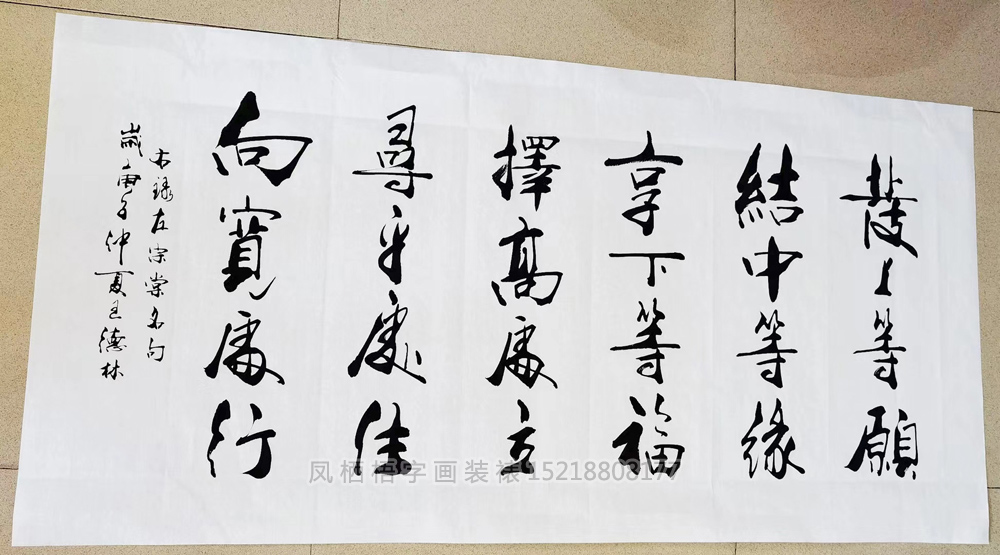 發上等願
結中等緣
享下等福
擇高處立
尋平處住
向寬處行
右錄左宗棠名句
歲庚子仲夏王德林
凤栖梧字画装裱15218808177